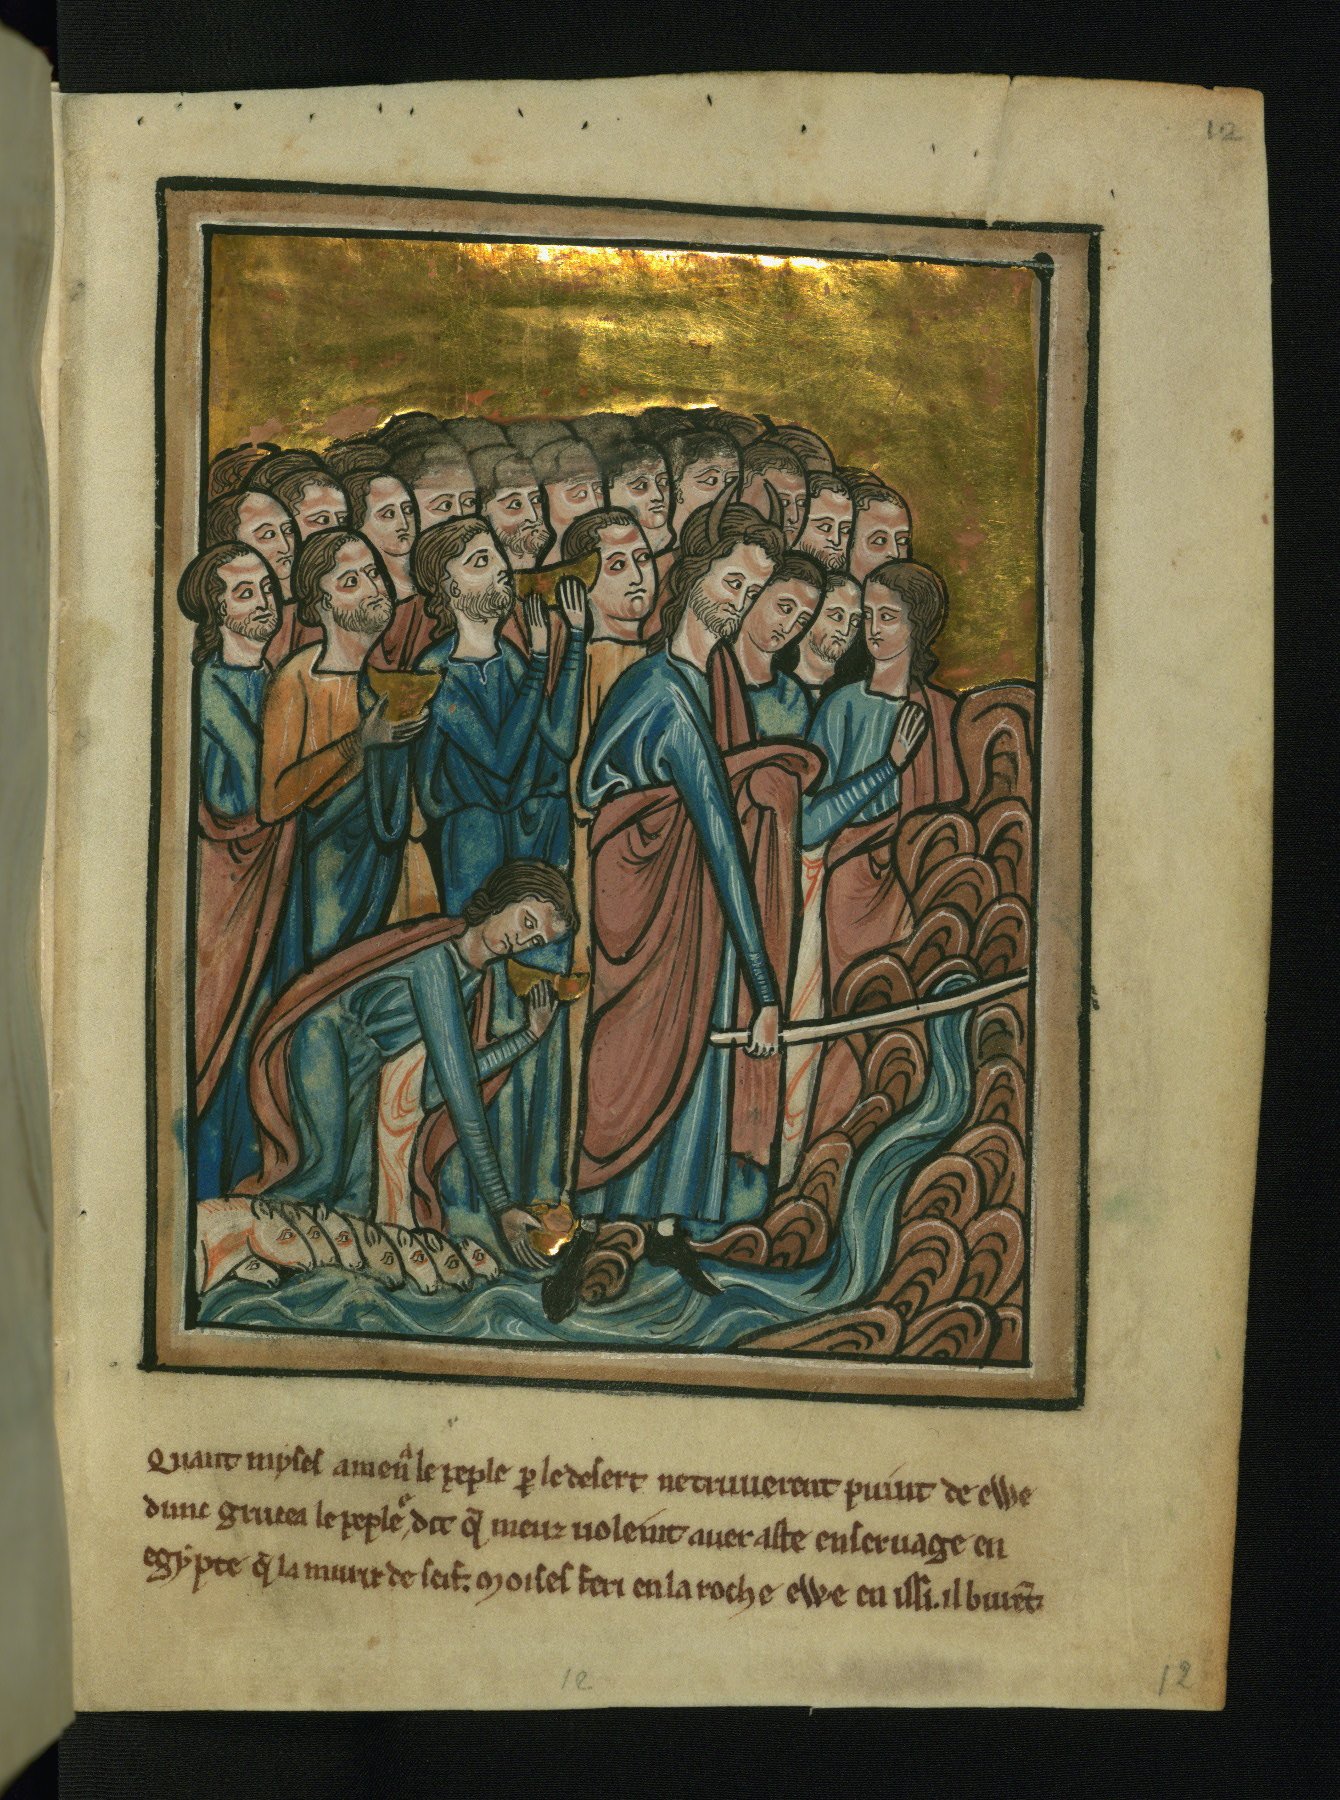 12
Quant myses amen̉ le peple ꝑ le desert ne truuerent puint de ewe
dunc grucea le peple, dit q̃ meuz uoleint auer aste enseruage en
egypte q̃ la murir de seif. Moises feri en la roche ewe en issi. il buiẽt
12
12